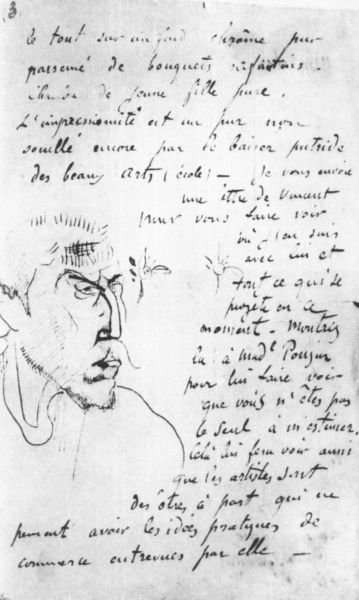 3
le tout sur un fond chrôme pur
parsemé de bouquets enfantins.
Chambre de jeune fille pure.
L'impressioniste est un pur non
souillé encore par le baiser putride
des beaux arts (école) — Je vous envoie
une lettre de Vincent
pour vous faire voir
où j'en suis
avec lui et
tout ce qui se
projette en ce
moment. Montrez
la à Madᵉ
pour lui faire voir
que vous n'êtes pas
le seul à m'estimer.
Celà lui fera voir aussi
que les artistes sont
des êtres à part qui ne
peuvent avoir les idées pratiques de
commerce entrevues par elle —